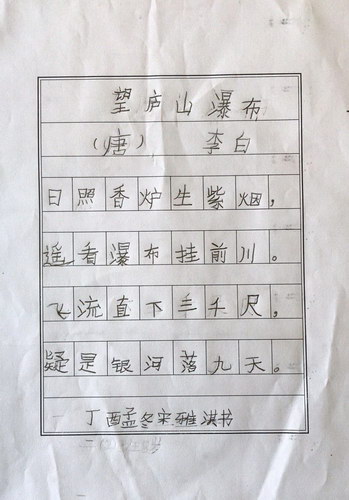 望庐山瀑布
（唐） 李白
日照香炉生紫烟，
遥看瀑布挂前川。
飞流直下三千尺，
疑是银河落九天。
丁酉孟冬宋雅淇书